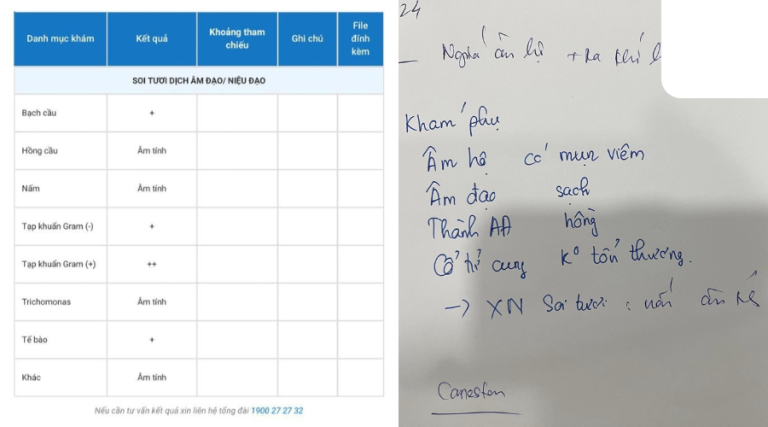 Danh mục khám Kết quả Khoảng tham chiếu Ghi chú File đính kèm
SOI TƯƠI DỊCH ÂM ĐẠO/ NIỆU ĐẠO
Bạch cầu +
Hồng cầu Âm tính
Nấm Âm tính
Tạp khuẩn Gram (-) +
Tạp khuẩn Gram (+) ++
Trichomonas Âm tính
Tế bào +
Khác Âm tính
Nếu cần tư vấn kết quả xin liên hệ tổng đài 1900 27 27 32
24
- Ngứa âm hộ + Ra khí
Khám phụ
Âm hộ có mụn viêm
Âm đạo sạch
Thành AĐ hồng
Cổ tử cung K° tổn thương.
-> XN Soi tươi : nấm
Canesten